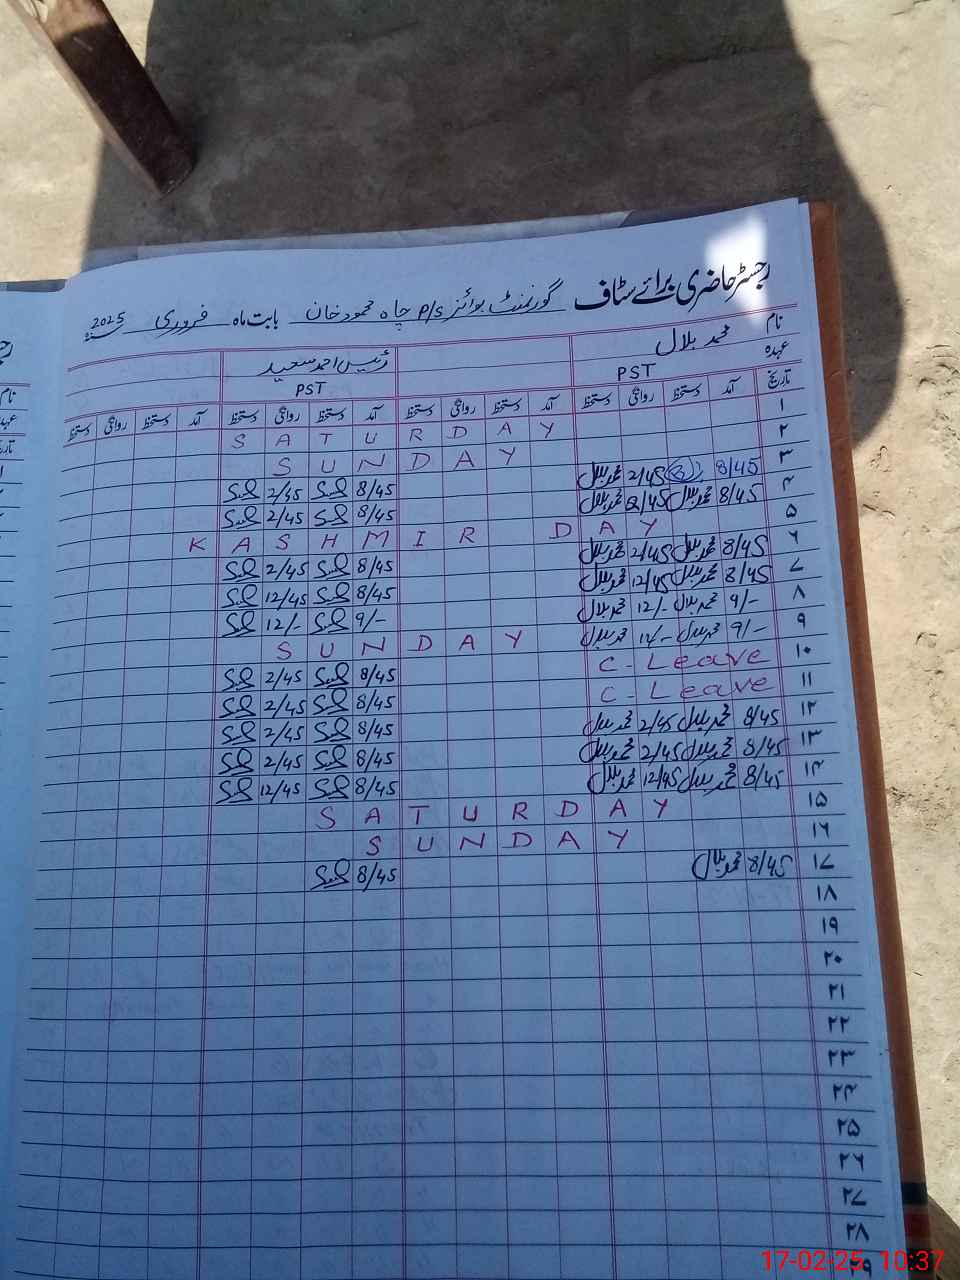 رجسٹر حاضری برائے سٹاف گورنمنٹ بوائز P/S چاہ محمود خان بابت ماہ فروری 2025
نام محمد بلال رئیس احمد سعید
عہدہ PST PST
تاریخ آمد دستخط روانگی دستخط آمد دستخط روانگی دستخط آمد دستخط روانگی دستخط آمد دستخط روانگی دستخط
۱ SATURDAY
۲ SUNDAY
۳ 8/45 2/45 محمد بلال 8/45 2/45
۴ 8/45 محمد بلال 2/45 محمد بلال 8/45 2/45
۵ KASHMIR DAY
۶ 8/45 محمد بلال 2/45 محمد بلال 8/45 2/45
۷ 8/45 محمد بلال 12/45 محمد بلال 8/45 12/45
۸ 9/- محمد بلال 12/- محمد بلال 9/- 12/-
۹ 9/- محمد بلال 12/- محمد بلال SUNDAY
۱۰ C-Leave 8/45 2/45
۱۱ C-Leave 8/45 2/45
۱۲ 8/45 محمد بلال 2/45 محمد بلال 8/45 2/45
۱۳ 8/45 محمد بلال 2/45 محمد بلال 8/45 2/45
۱۴ 8/45 محمد بلال 12/45 محمد بلال 8/45 12/45
۱۵ SATURDAY
۱۶ SUNDAY
۱۷ 8/45 محمد بلال 8/45
۱۸
۱۹
۲۰
۲۱
۲۲
۲۳
۲۴
۲۵
۲۶
۲۷
۲۸
17-02-25 10:37